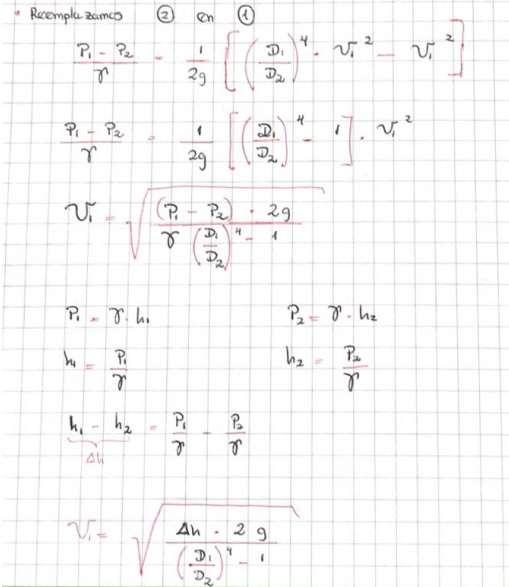 • Reemplazamos ② en ①
(P₁ - P₂)/γ = 1/2g [(D₁/D₂)⁴ · V₁² - V₁²]
(P₁ - P₂)/γ = 1/2g [(D₁/D₂)⁴ - 1] · V₁²
V₁ = √((P₁ - P₂) · 2g / γ (D₁/D₂)⁴ - 1)
P₁ = γ · h₁ P₂ = γ · h₂
h₁ = P₁/γ h₂ = P₂/γ
h₁ - h₂ = P₁/γ - P₂/γ
Δh
V₁ = √(Δh · 2g / (D₁/D₂)⁴ - 1)